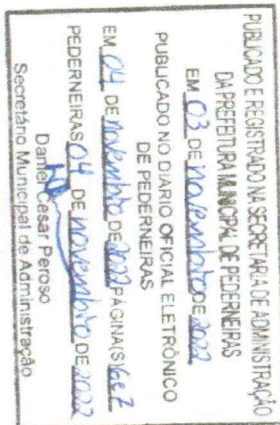 PUBLICADO E REGISTRADO NA SECRETARIA DE ADMINISTRAÇÃO
DA PREFEITURA MUNICIPAL DE PEDERNEIRAS
EM 03 DE novembro DE 2022
PUBLICADO NO DIÁRIO OFICIAL ELETRÔNICO
DE PEDERNEIRAS
EM 04 DE novembro DE 2022 PÁGINA(S) 6 e 7
PEDERNEIRAS 04 DE novembro DE 2022
Daniel Cesar Peroso
Secretário Municipal de Administração